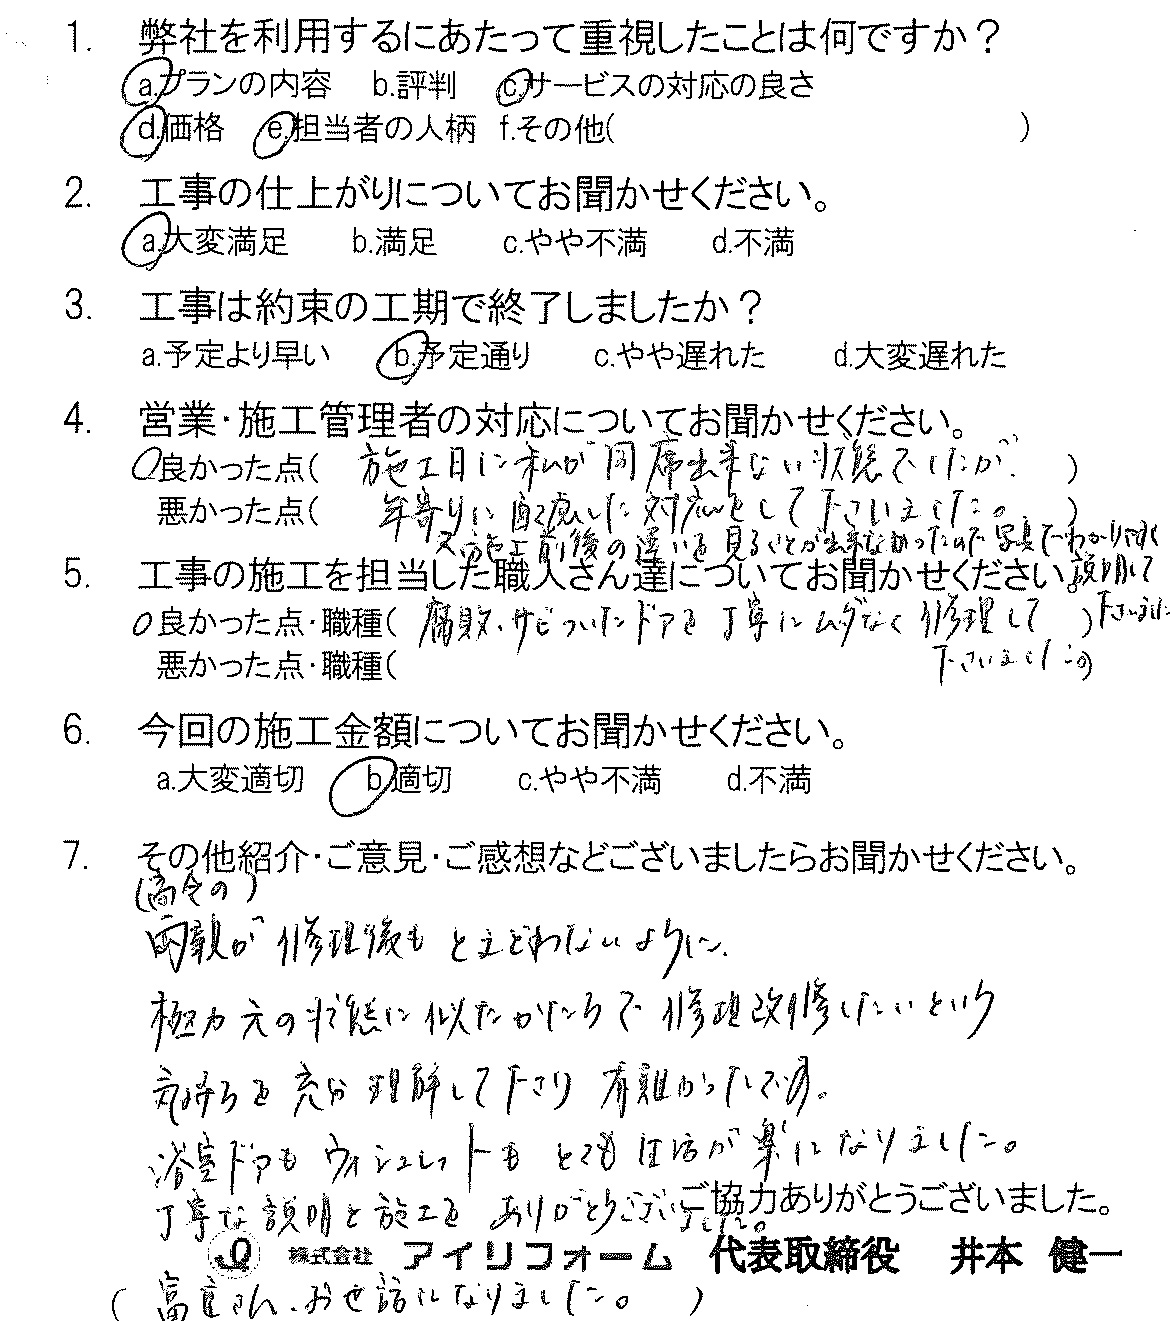 1. 弊社を利用するにあたって重視したことは何ですか？
a.プランの内容 b.評判 c.サービスの対応の良さ
d.価格 e.担当者の人柄 f.その他( )
2. 工事の仕上がりについてお聞かせください。
a.大変満足 b.満足 c.やや不満 d.不満
3. 工事は約束の工期で終了しましたか？
a.予定より早い b.予定通り c.やや遅れた d.大変遅れた
4. 営業・施工管理者の対応についてお聞かせください。
○良かった点( 施工日に私が同席出来ない状態でしたが、 )
悪かった点( 年寄りに配慮した対応をして下さいました。 )
又、施工前後の違いを見ることが出来なかったので写真でわかりやすく
5. 工事の施工を担当した職人さん達についてお聞かせください。説明して
○良かった点・職種( 腐敗、サビついたドアを丁寧にムダなく修理して ) 下さいました
悪かった点・職種( 下さいました。)
6. 今回の施工金額についてお聞かせください。
a.大変適切 b.適切 c.やや不満 d.不満
7. その他紹介・ご意見・ご感想などございましたらお聞かせください。
(高令の)
両親が修理後もとまどわないように、
極力元の状態に似たかたちで修理改修したいという
気持ちを充分理解して下さり有難かったです。
浴室ドアもウォシュレットもとても生活が楽になりました。
丁寧な説明と施工をありがとうございました。
ご協力ありがとうございました。
株式会社 アイリフォーム 代表取締役 井本 健一
( 富良さん、お世話になりました。 )